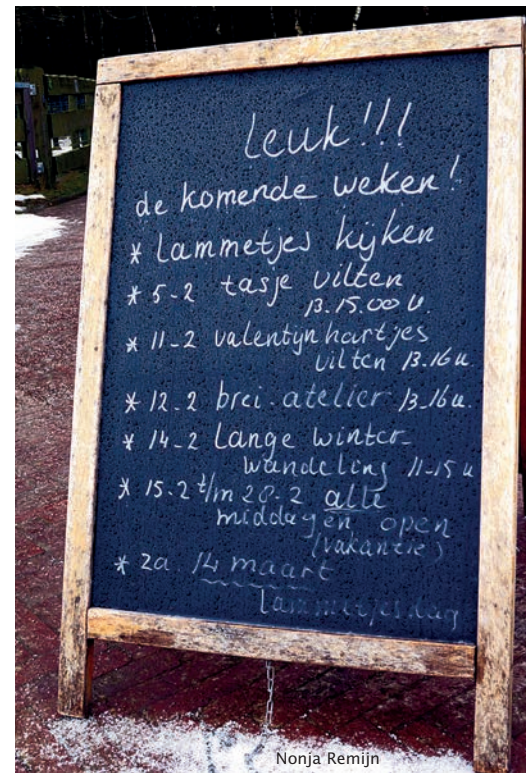 leuk!!!
de komende weken!
* lammetjes kijken
* 5-2 tasje vilten
13.15.00 u.
* 11-2 valentijnhartjes
vilten 13.16 u.
* 12-2 brei-atelier 13-16 u.
* 14-2 lange winter-
wandeling 11-15 u
* 15-2 t/m 28-2 alle
middagen open
(vakantie)
* za 14 maart
lammetjesdag
Nonja Remijn